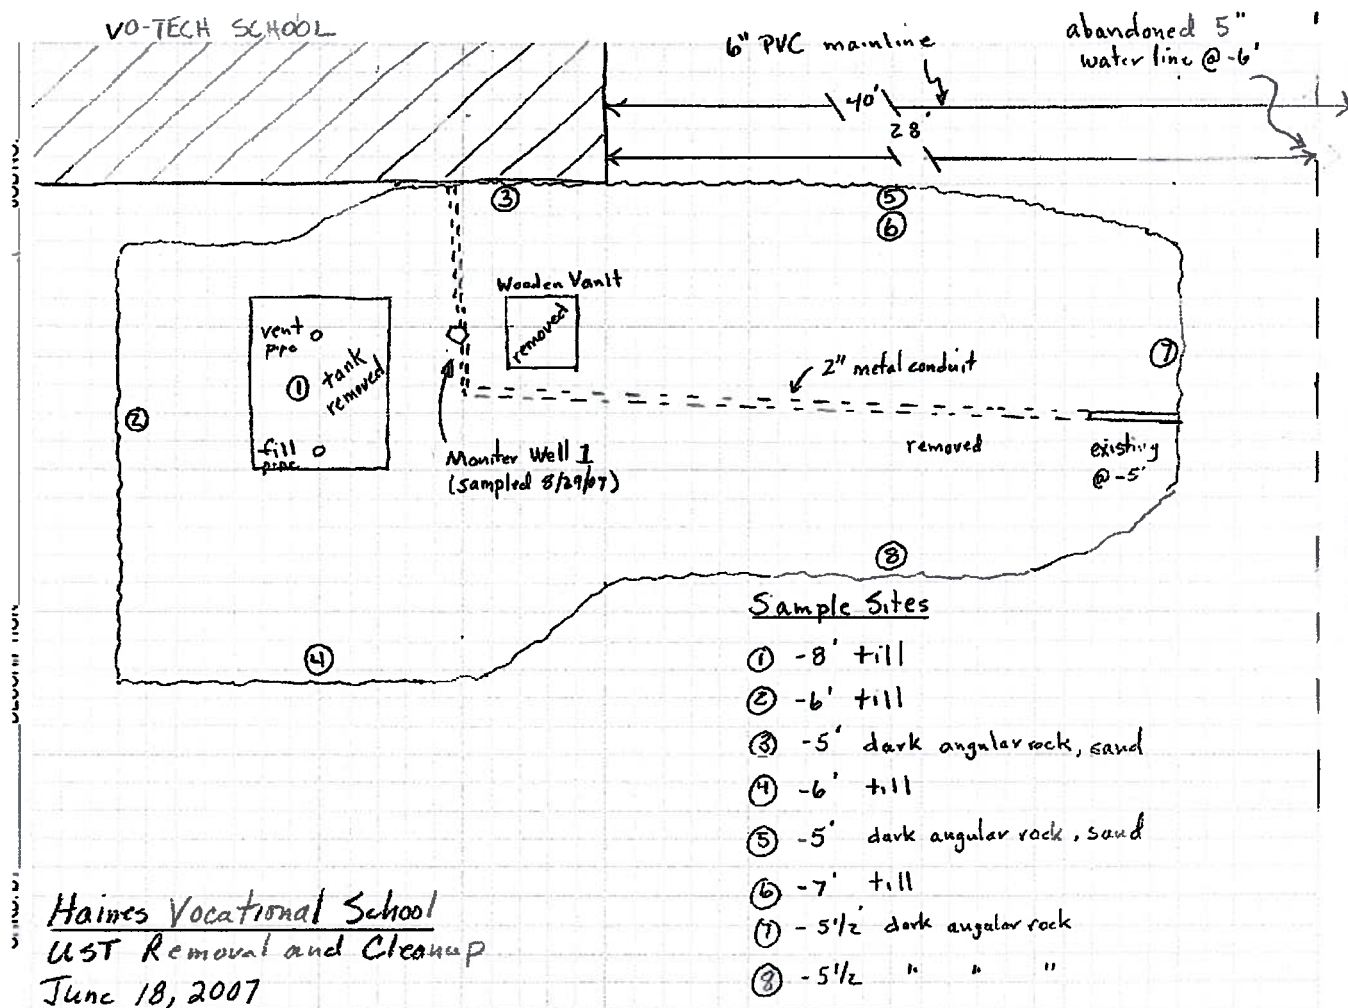 VO-TECH SCHOOL
6" PVC mainline
abandoned 5"
water line @ -6'
40'
28'
3
5
6
Wooden Vault
removed
vent
pipe
1
tank
removed
fill
pipe
2
7
2" metal conduit
removed
existing
@ -5'
Moniter Well 1
(sampled 8/29/07)
8
4
Sample Sites
1 -8' till
2 -6' till
3 -5' dark angular rock, sand
4 -6' till
5 -5' dark angular rock, sand
6 -7' till
7 -5 1/2' dark angular rock
8 -5 1/2 " " "
Haines Vocational School
UST Removal and Cleanup
June 18, 2007